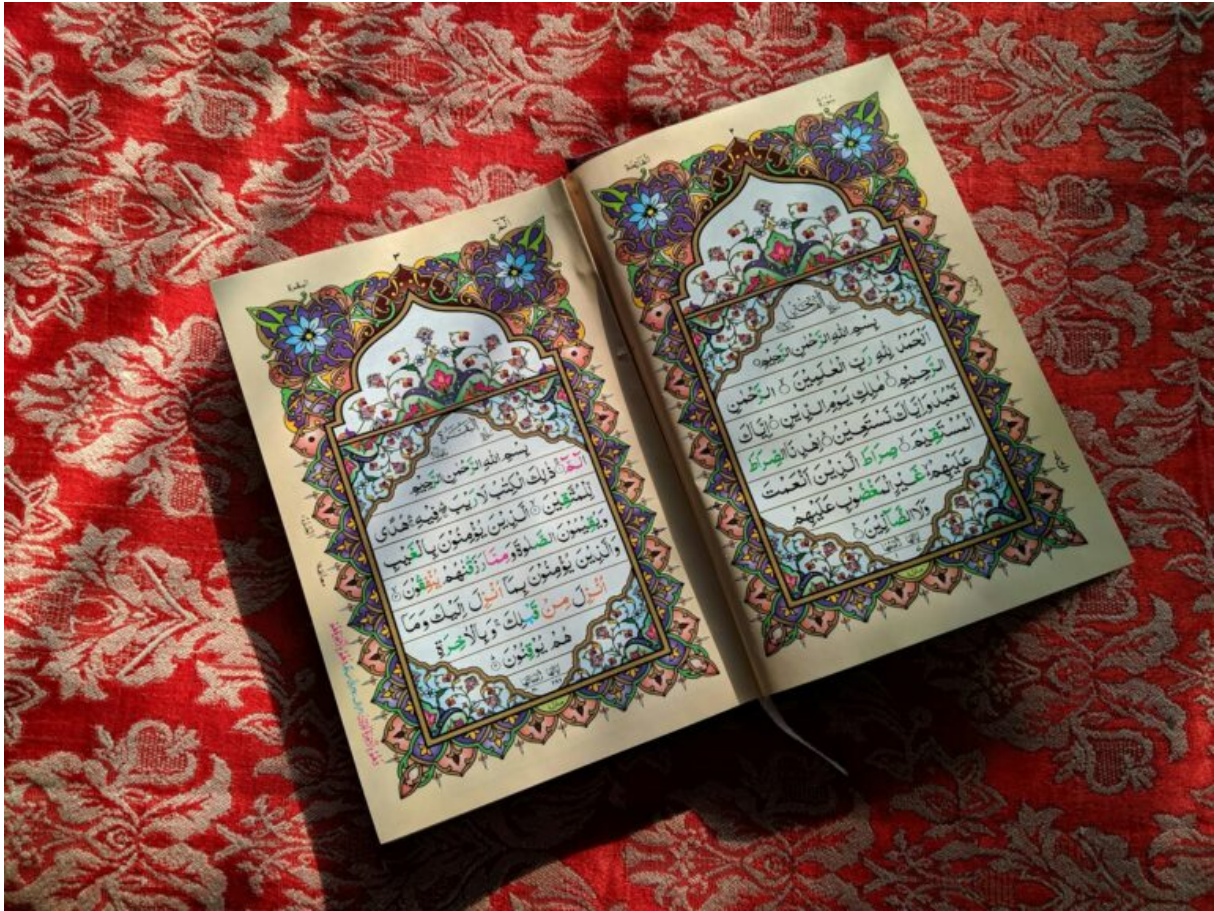 سورة
٢
الفاتحة
بِسْمِ اللهِ الرَّحْمٰنِ الرَّحِيْمِ
اَلْحَمْدُ لِلّٰهِ رَبِّ الْعٰلَمِيْنَ ۙ الرَّحْمٰنِ
الرَّحِيْمِ ۙ مٰلِكِ يَوْمِ الدِّيْنِ ؕ اِيَّاكَ
نَعْبُدُ وَاِيَّاكَ نَسْتَعِيْنُ ؕ اِهْدِنَا الصِّرَاطَ
الْمُسْتَقِيْمَ ۙ صِرَاطَ الَّذِيْنَ اَنْعَمْتَ
عَلَيْهِمْ ۙ غَيْرِ الْمَغْضُوْبِ عَلَيْهِمْ
وَلَا الضَّآلِّيْنَ
الٓمّٓ
٣
البقرة
بِسْمِ اللهِ الرَّحْمٰنِ الرَّحِيْمِ
الٓمّٓ ۚ ذٰلِكَ الْكِتٰبُ لَا رَيْبَ ۛ فِيْهِ ۛ هُدًى
لِّلْمُتَّقِيْنَ ۙ الَّذِيْنَ يُؤْمِنُوْنَ بِالْغَيْبِ
وَيُقِيْمُوْنَ الصَّلٰوةَ وَمِمَّا رَزَقْنٰهُمْ يُنْفِقُوْنَ ۙ
وَالَّذِيْنَ يُؤْمِنُوْنَ بِمَآ اُنْزِلَ اِلَيْكَ وَمَآ
اُنْزِلَ مِنْ قَبْلِكَ ۚ وَبِالْاٰخِرَةِ
هُمْ يُوْقِنُوْنَ ؕ